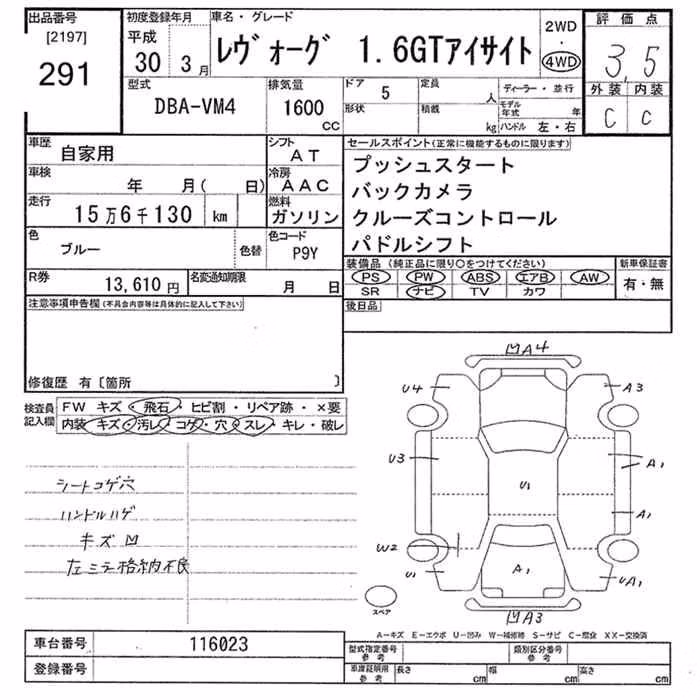 出品番号 初度登録年月 車名・グレード 2WD 評価点
[2197] 平成 レヴォーグ 1.6GTアイサイト ・
291 30 3月 4WD 3.5
型式 排気量 ドア 5 定員 人 ディーラー・並行 外装 内装
DBA-VM4 1600 cc 形状 積載 kg モデル年式 年 C C
ハンドル 左・右
車歴 自家用 シフト AT セールスポイント(正常に機能するものに限ります)
車検 年 月( 日) 冷房 AAC プッシュスタート
走行 15万6千130 km 燃料 ガソリン バックカメラ
色 ブルー 色替 色コード P9Y クルーズコントロール
パドルシフト
R券 13,610円 名変通知期限 月 日 装備品(純正品に限り○をつけてください) 新車保証書
PS PW ABS エアB AW 有・無
SR ナビ TV カワ
注意事項申告欄(不具合内容等は具体的に記入して下さい) 後日品
修復歴 有〔箇所 〕
検査員記入欄 FW キズ・飛石・ヒビ割・リペア跡・×要
内装 キズ・汚レ・コゲ・穴・スレ・キレ・破レ
シートコゲ穴
ハンドルハゲ
キズ凹
左ミラー格納不良
凹A4
U4 A3
U3 U1 A1
A1
W2
U1 A1 UA1
スペア 凹A3
A-キズ E-エクボ U-凹み W-補修跡 S-サビ C-腐食 XX-交換済
車台番号 116023 型式指定番号 参考 類別区分番号 参考
登録番号 車庫証明用 参考 長さ cm 幅 cm 高さ cm